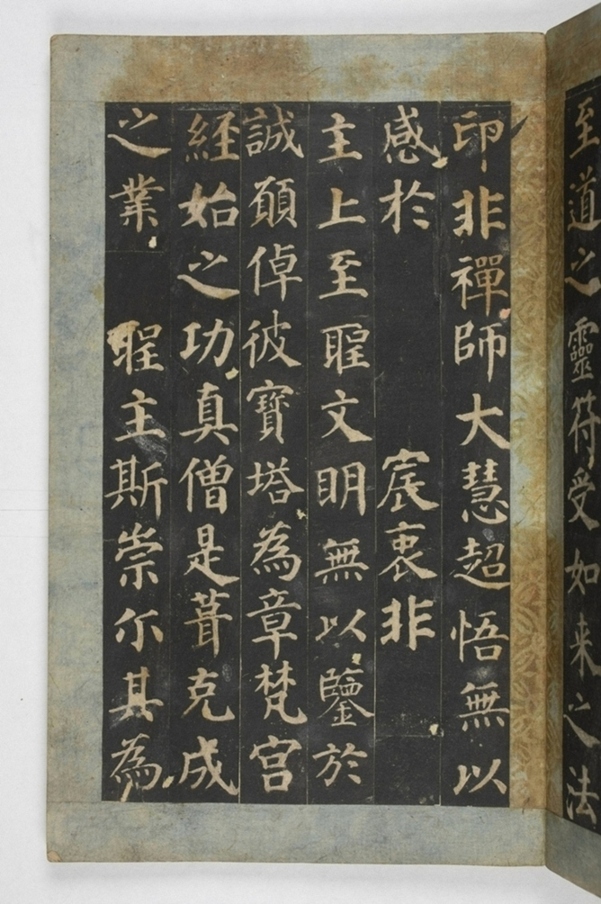 至道之靈符受如来之法
印非禪師大慧超悟無以
感於　宸衷非
主上至聖文明無以鑒於
誠願倬彼寶塔為章梵宮
經始之功真僧是葺克成
之業　聖主斯崇尒其為